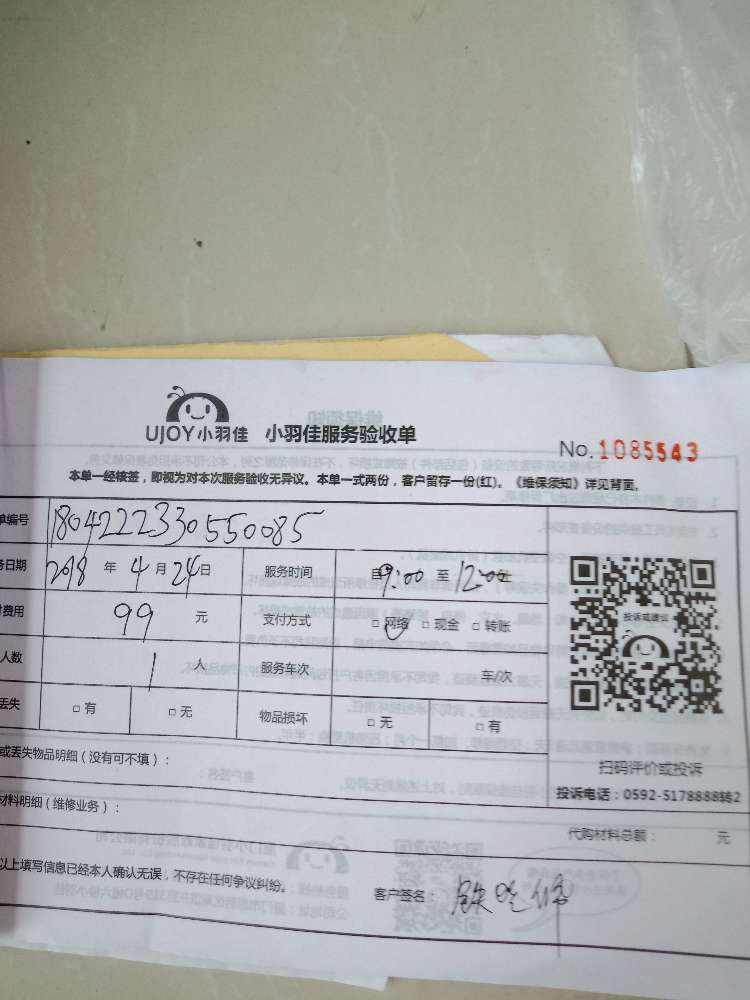 UJOY小羽佳 小羽佳服务验收单
No. 1085543
本单一经核签，即视为对本次服务验收无异议。本单一式两份，客户留存一份(红)。《维保须知》详见背面。
单编号 1804222330550085
日期 2018 年 4 月 24 日 服务时间 自 9:00 至 12:00 止
费用 99 元 支付方式 □ 网络 □ 现金 □ 转账
人数 1 人 服务车次 车/次
丢失 □ 有 □ 无 物品损坏 □ 无 □ 有
投诉或建议
扫码评价或投诉
投诉电话：0592-5178888转2
或丢失物品明细（没有可不填）：
材料明细（维修业务）：
代购材料总额： 元
以上填写信息已经本人确认无误，不存在任何争议纠纷。
客户签名：